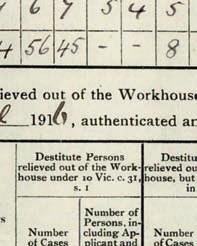 6 7 5 4 5
4 56 45 - - 8
ieved out of the Workhouse
1916, authenticated an
Destitute Persons
relieved out of the Work-
house under 10 Vic. c. 31,
s. 1
Destitu
relieved ou
house, but
in
rs
Number
of Cases
Number of
Persons, in-
cluding Ap-
plicant and
Number
of Cases